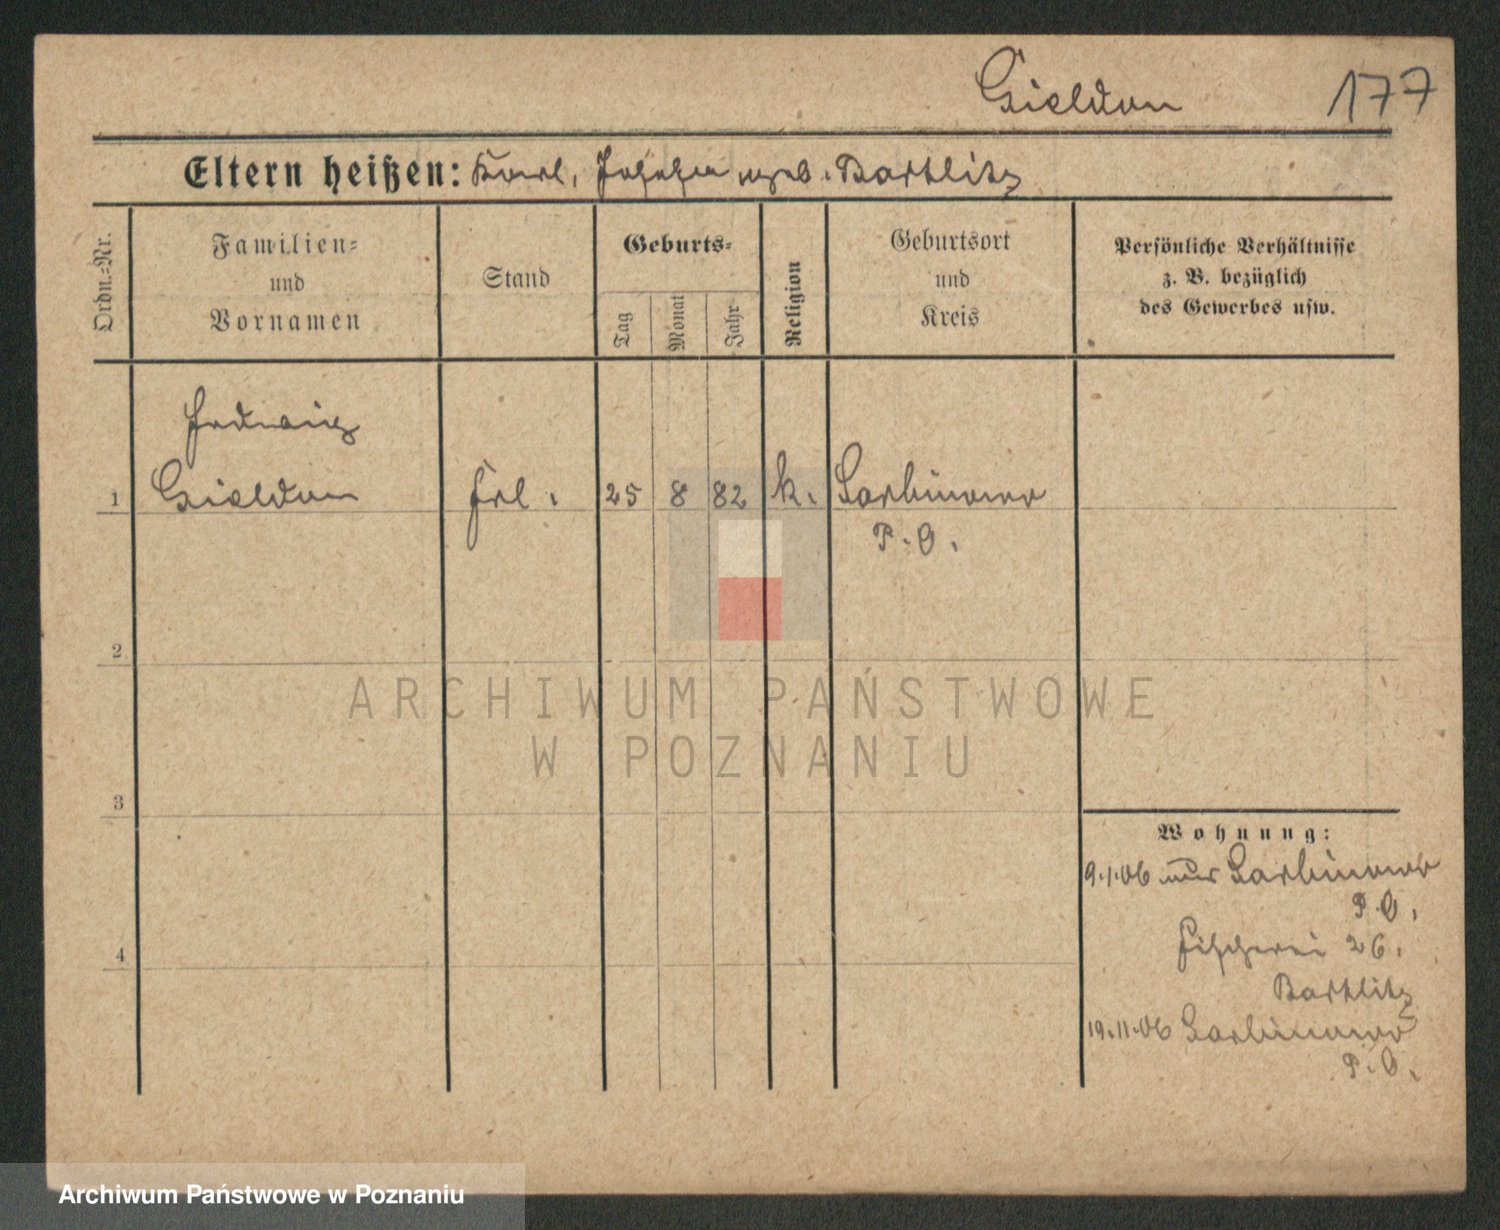 Gieldon 177
Eltern heißen: Karl, Josefa geb. Bartlitz
Ordn.-Nr.
Familien-
und
Vornamen
Stand
Geburts-
Tag
Monat
Jahr
Religion
Geburtsort
und
Kreis
Persönliche Verhältnisse
z. B. bezüglich
des Gewerbes usw.
Hedwig
1 Gieldon Frl. 25 8 82 k. Sarbinowo
P. O.
2
ARCHIWUM PAŃSTWOWE
W POZNANIU
3
Wohnung:
9.1.06 aus Sarbinowo
P. O.
4 Fischerei 26.
Bartlitz
19.11.06 Sarbinowo
P. O.
Archiwum Państwowe w Poznaniu